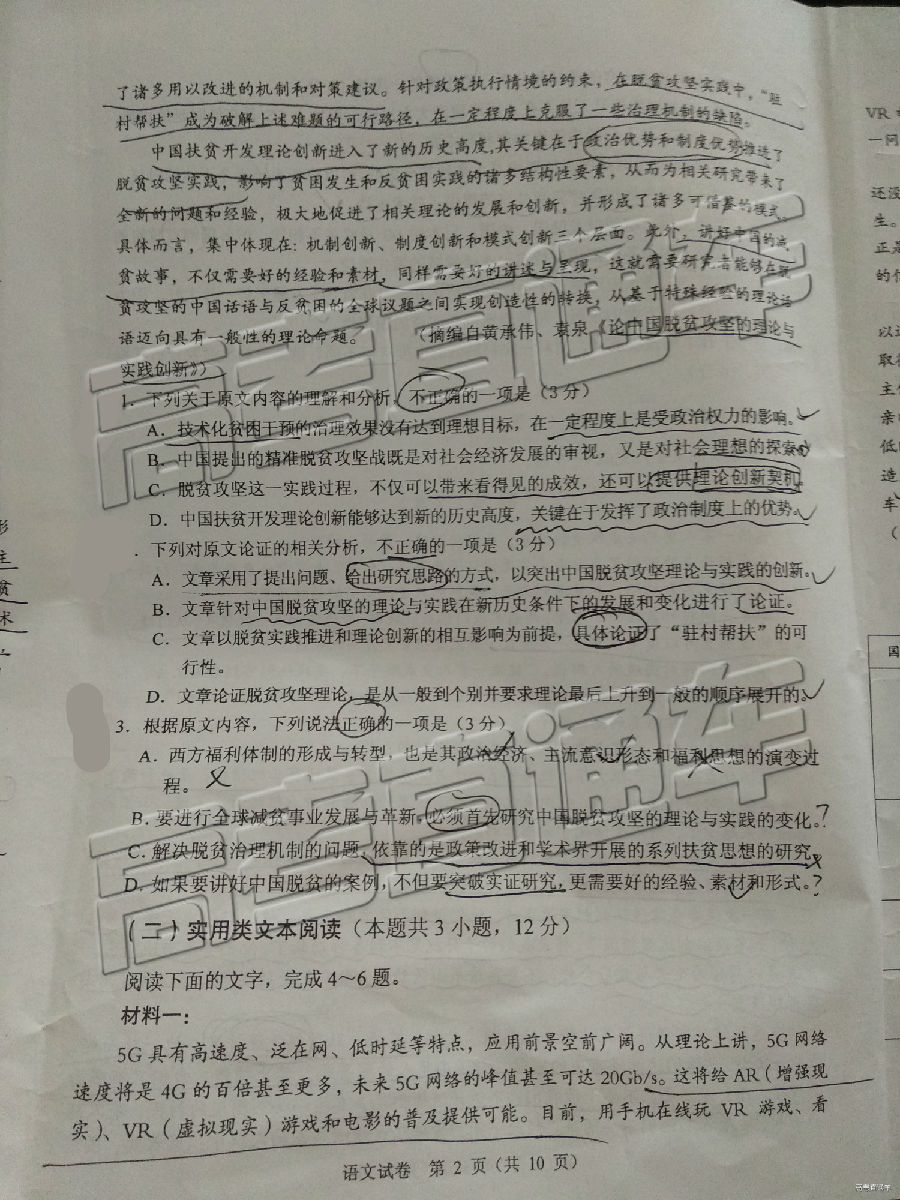 了诸多用以改进的机制和对策建议。针对政策执行情境的约束，在脱贫攻坚实践中，“驻
村帮扶”成为破解上述难题的可行路径，在一定程度上克服了一些治理机制的缺陷。
中国扶贫开发理论创新进入了新的历史高度，其关键在于政治优势和制度优势推进了
脱贫攻坚实践，影响了贫困发生和反贫困实践的诸多结构性要素，从而为相关研究带来了
全新的问题和经验，极大地促进了相关理论的发展和创新，并形成了诸多可借鉴的模式。
具体而言，集中体现在：机制创新、制度创新和模式创新三个层面。此外，讲好中国的减
贫故事，不仅需要好的经验和素材，同样需要好的讲述与呈现，这就需要研究者能够在脱
贫攻坚的中国话语与反贫困的全球议题之间实现创造性的转换，从基于特殊经验的理论话
语迈向具有一般性的理论命题。 （摘编自黄承伟、袁泉《论中国脱贫攻坚的理论与
实践创新》）
1. 下列关于原文内容的理解和分析，不正确的一项是（3分）
A．技术化贫困干预的治理效果没有达到理想目标，在一定程度上是受政治权力的影响。
B．中国提出的精准脱贫攻坚战既是对社会经济发展的审视，又是对社会理想的探索。
C．脱贫攻坚这一实践过程，不仅可以带来看得见的成效，还可以提供理论创新契机
D．中国扶贫开发理论创新能够达到新的历史高度，关键在于发挥了政治制度上的优势。
．下列对原文论证的相关分析，不正确的一项是（3分）
A．文章采用了提出问题、给出研究思路的方式，以突出中国脱贫攻坚理论与实践的创新。
B．文章针对中国脱贫攻坚的理论与实践在新历史条件下的发展和变化进行了论证。
C．文章以脱贫实践推进和理论创新的相互影响为前提，具体论证了“驻村帮扶”的可
行性。
D．文章论证脱贫攻坚理论，是从一般到个别并要求理论最后上升到一般的顺序展开的。
3．根据原文内容，下列说法正确的一项是（3分）
A．西方福利体制的形成与转型，也是其政治经济、主流意识形态和福利思想的演变过
程。
B．要进行全球减贫事业发展与革新，必须首先研究中国脱贫攻坚的理论与实践的变化。?
C．解决脱贫治理机制的问题，依靠的是政策改进和学术界开展的系列扶贫思想的研究
D．如果要讲好中国脱贫的案例，不但要突破实证研究，更需要好的经验、素材和形式。?
（二）实用类文本阅读（本题共3小题，12分）
阅读下面的文字，完成4～6题。
材料一：
5G具有高速度、泛在网、低时延等特点，应用前景空前广阔。从理论上讲，5G网络
速度将是4G的百倍甚至更多，未来5G网络的峰值甚至可达20Gb/s。这将给AR（增强现
实）、VR（虚拟现实）游戏和电影的普及提供可能。目前，用手机在线玩 VR 游戏、看
语文试卷 第 2 页（共 10 页）
高考直通车
高考直通车
VR
一问
还没
生。
正是
的
以
取
主
亲
低
造
车
（
国
主
贫
术